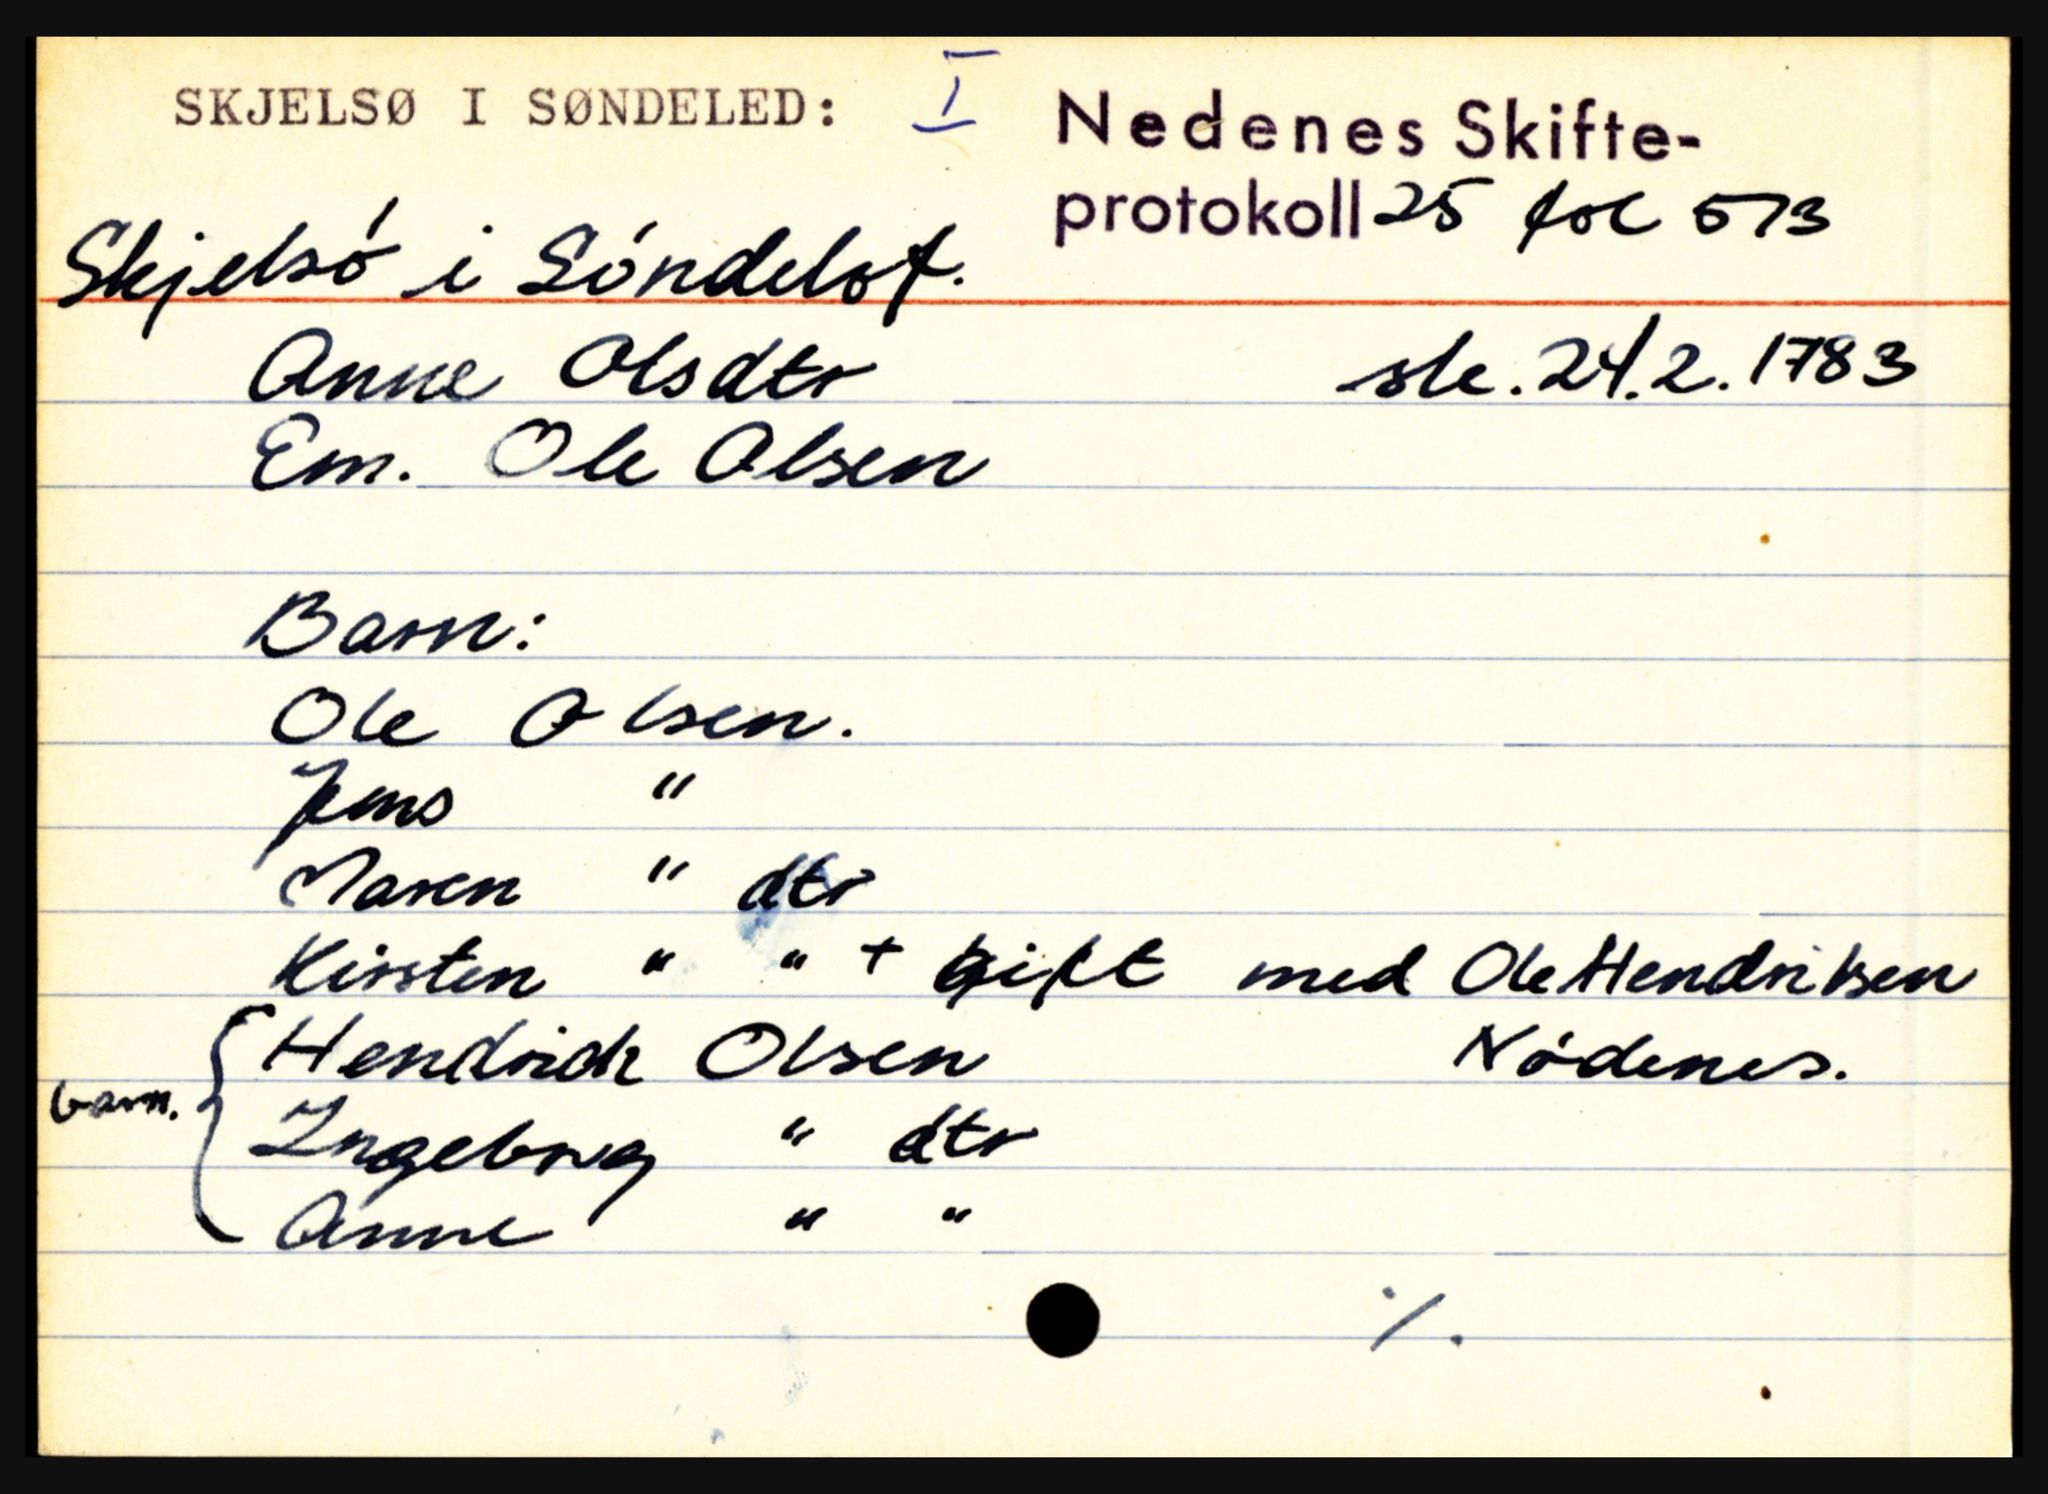 SKJELSØ I SØNDELED: I
Nedenes Skifte-
protokoll 25 fol 573
Skjelsó i Sóndelof.
Anne Olsdtr sk. 24.2.1783
Em. Ole Olsen
Barn:
Ole Olsen.
Jens "
Maren " dtr
Kirsten " " + gift med Ole Hendriksen
Hendrich Olsen Nódenes.
barn.
Ingeborg " dtr
Anne " "
./.